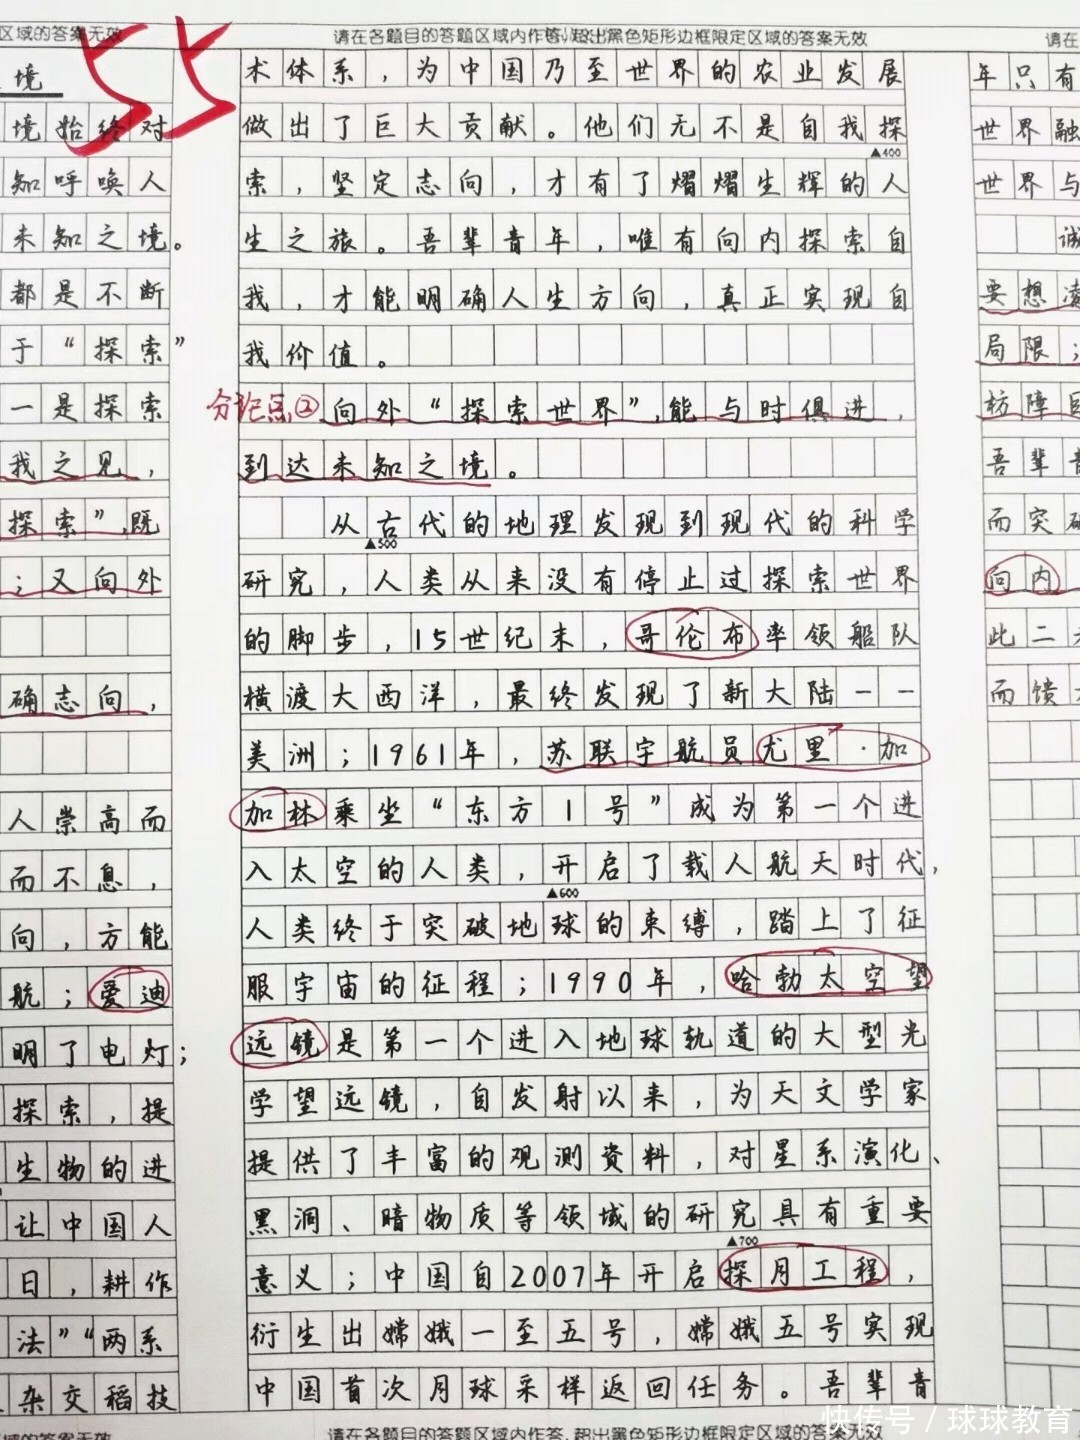 区域的答案无效
55
境
境始终对
知呼唤人
未知之境。
都是不断
于“探索”
一是探索
我之见，
探索”，既
；又向外
确志向，
人崇高而
而不息，
向，方能
航；爱迪
明了电灯；
探索，提
生物的进
让中国人
日，耕作
法”“两系
杂交稻技
域的答案无效
请在各题目的答题区域内作答，超出黑色矩形边框限定区域的答案无效
术体系，为中国乃至世界的农业发展
做出了巨大贡献。他们无不是自我探
▲400
索，坚定志向，才有了熠熠生辉的人
生之旅。吾辈青年，唯有向内探索自
我，才能明确人生方向，真正实现自
我价值。
分论点②
向外“探索世界”，能与时俱进，
到达未知之境。
从古代的地理发现到现代的科学
▲500
研究，人类从来没有停止过探索世界
的脚步，15世纪末，哥伦布率领船队
横渡大西洋，最终发现了新大陆——
美洲；1961年，苏联宇航员尤里·加
加林乘坐“东方1号”成为第一个进
入太空的人类，开启了载人航天时代，
▲600
人类终于突破地球的束缚，踏上了征
服宇宙的征程；1990年，哈勃太空望
远镜是第一个进入地球轨道的大型光
学望远镜，自发射以来，为天文学家
提供了丰富的观测资料，对星系演化、
黑洞、暗物质等领域的研究具有重要
▲700
意义；中国自2007年开启探月工程，
衍生出嫦娥一至五号，嫦娥五号实现
中国首次月球采样返回任务。吾辈青
请在各题目的答题区域内作答，超出黑色矩形边框限定区域的答案无效
请在
年只有
世界融
世界与
诚
要想
局限；
障
吾辈青
而突破
向内
此二
而馈
快传号 / 球球教育